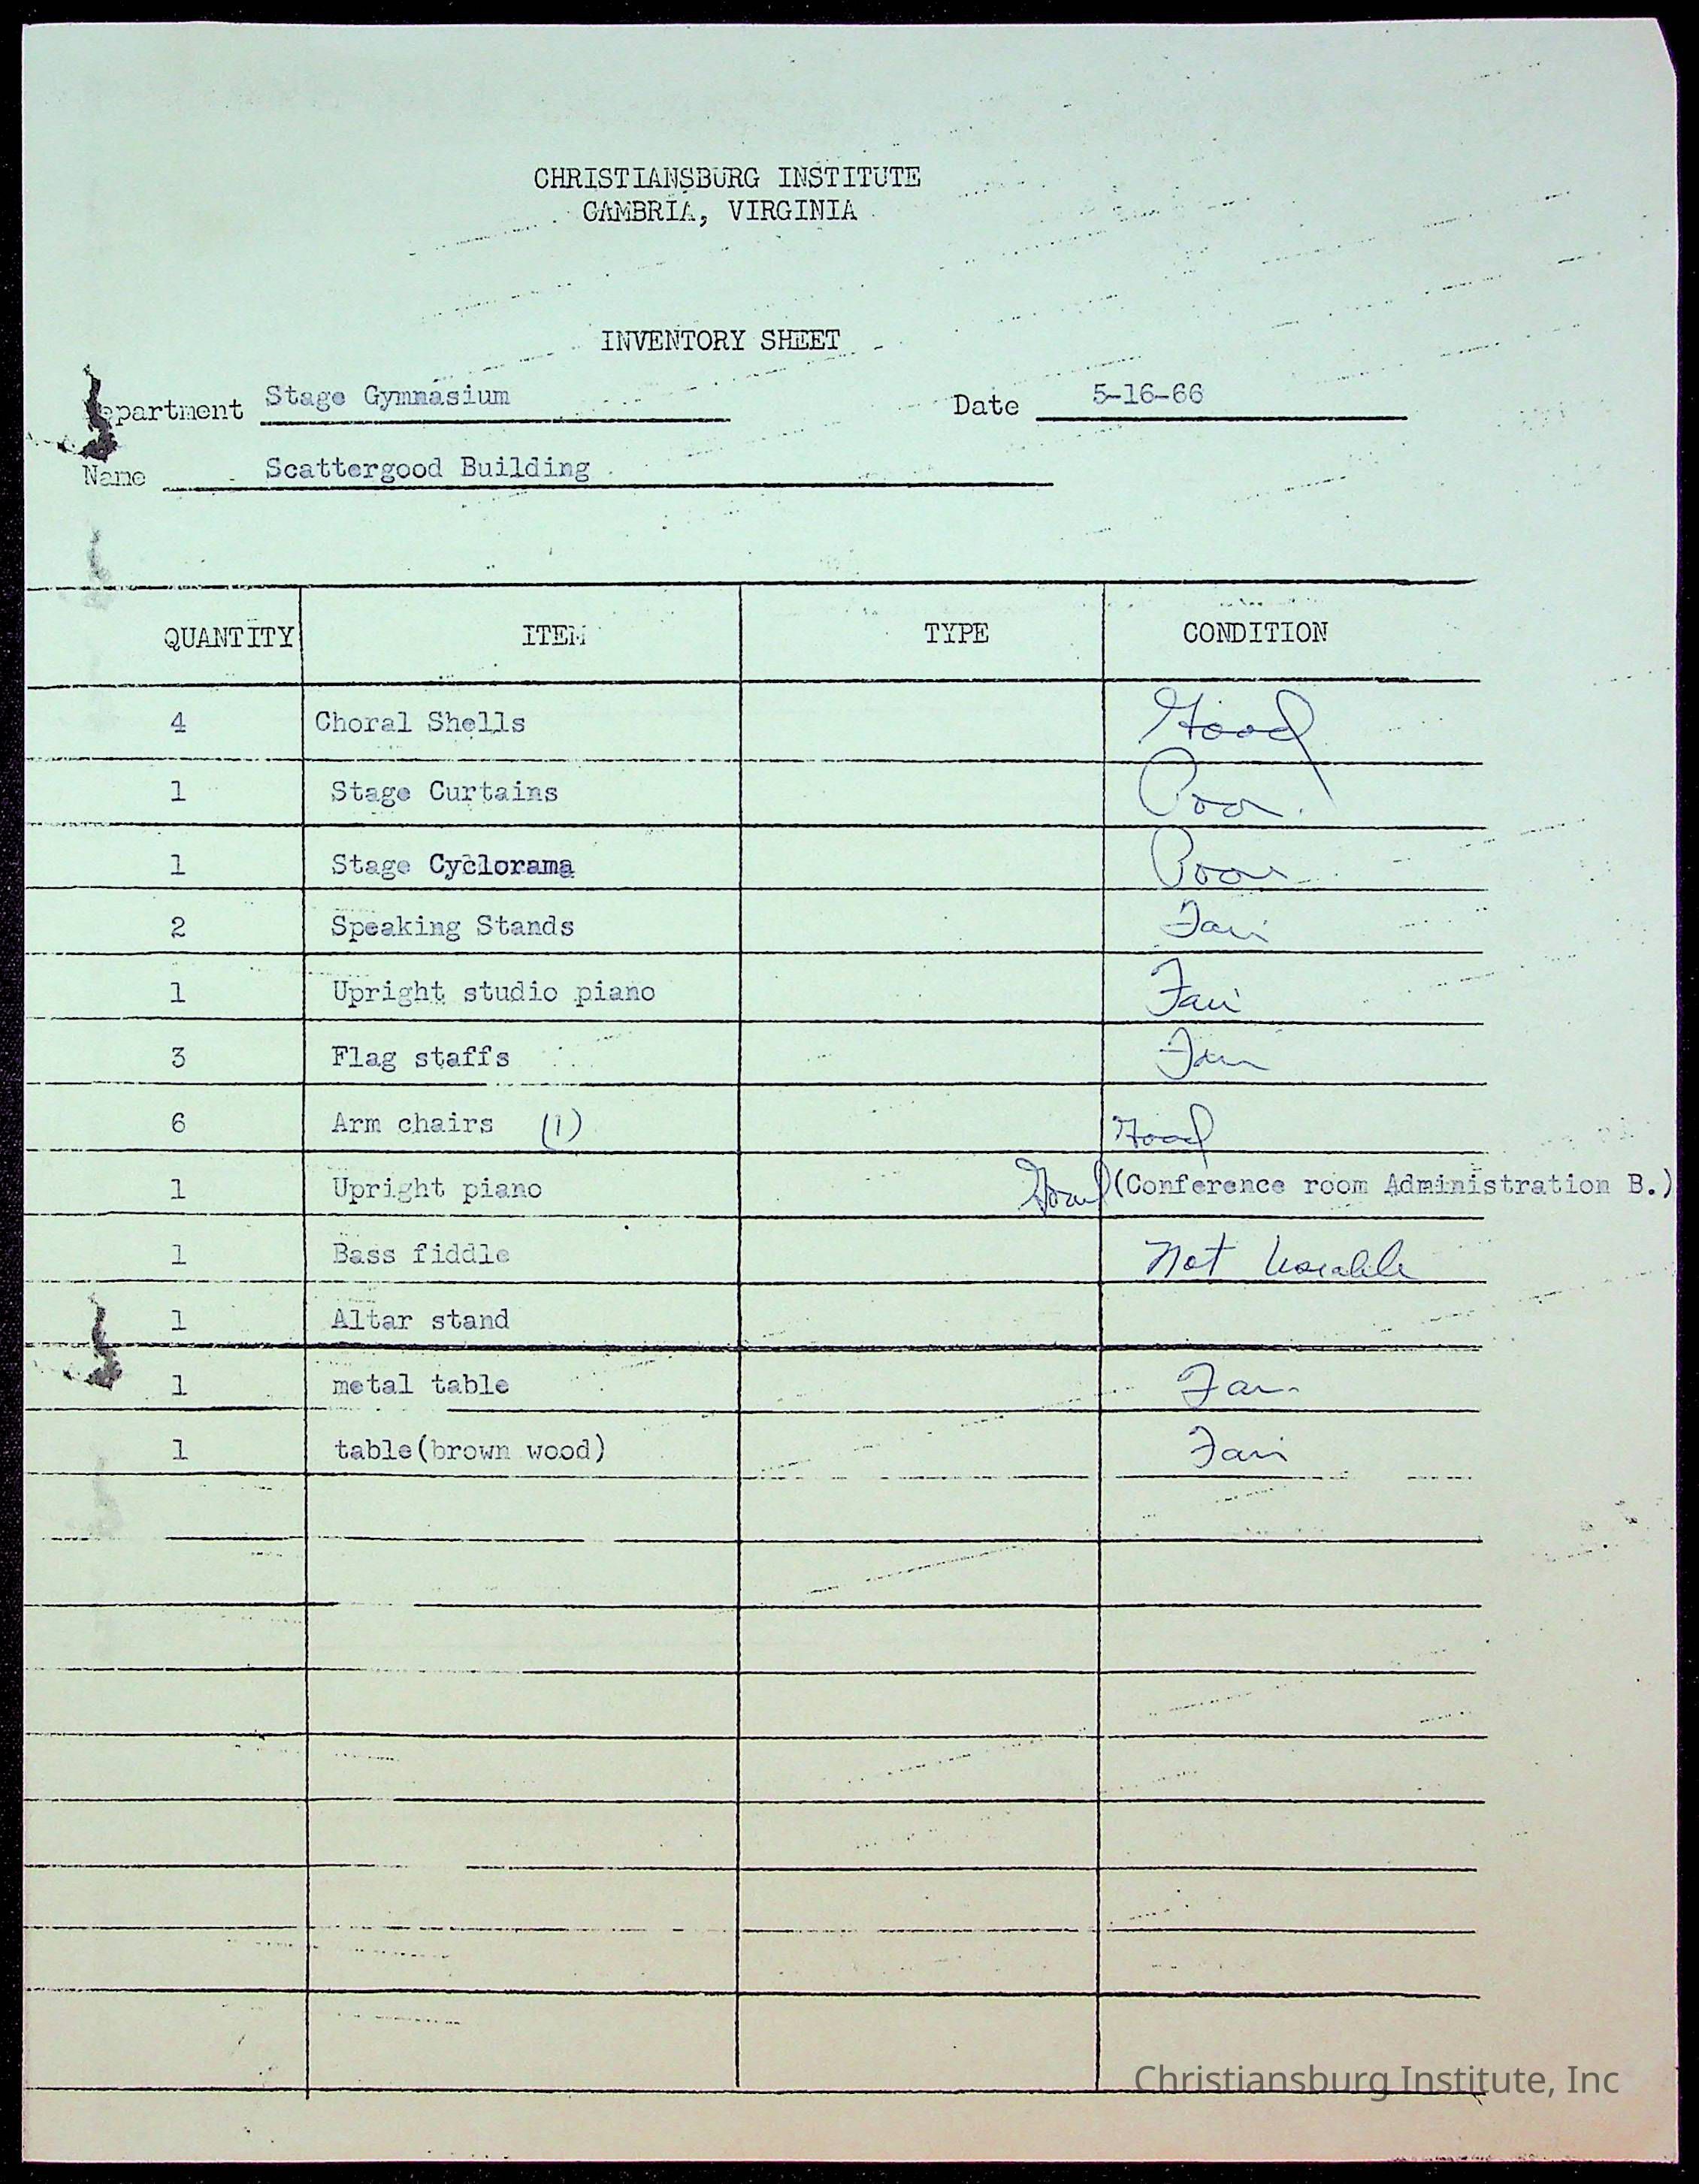 CHRISTIANSBURG INSTITUTE
CAMBRIA, VIRGINIA
INVENTORY SHEET
epartment Stage Gymnasium Date 5-16-66
Name Scattergood Building
QUANTITY ITEM TYPE CONDITION
4 Choral Shells Good
1 Stage Curtains Poor.
1 Stage Cyclorama Poor
2 Speaking Stands Fair
1 Upright studio piano Fair
3 Flag staffs Fair
6 Arm chairs (1) Good
1 Upright piano Good (Conference room Administration B.)
1 Bass fiddle Not Useable
1 Altar stand
1 metal table Fair
1 table(brown wood) Fair
Christiansburg Institute, Inc